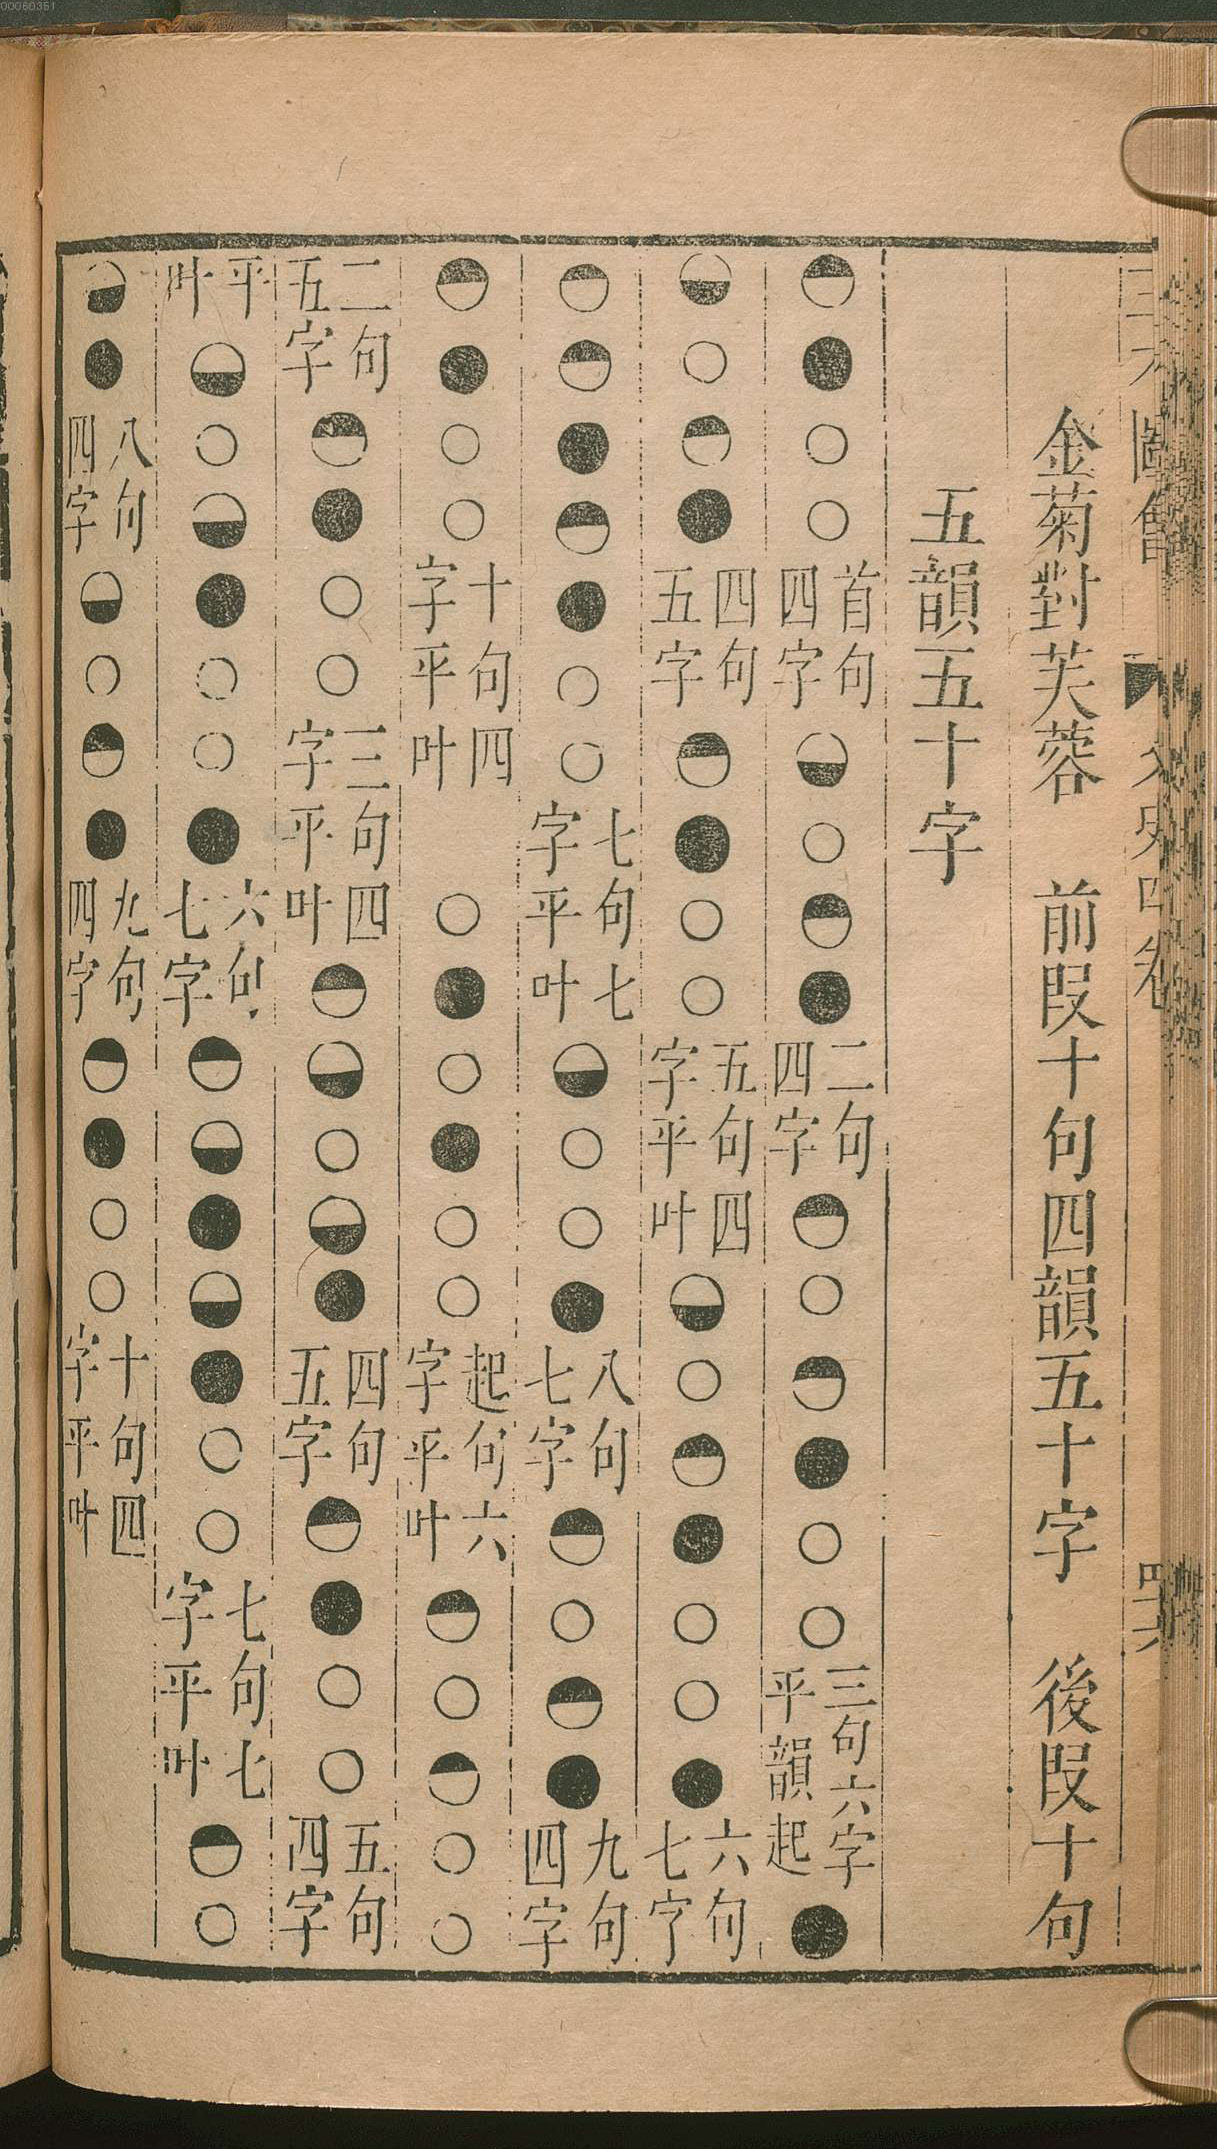 三才圖會 文史四卷
金菊對芙蓉 前叚十句四韻五十字 後叚十句
五韻五十字
首句四字 二句四字 三句六字平韻起
四句五字 五句四字平叶 六句七字
七句七字平叶 八句七字 九句四字
十句四字平叶 起句六字平叶
二句五字 三句四字平叶 四句五字 五句四字
平叶 六句七字 七句七字平叶
八句四字 九句四字 十句四字平叶
00060351